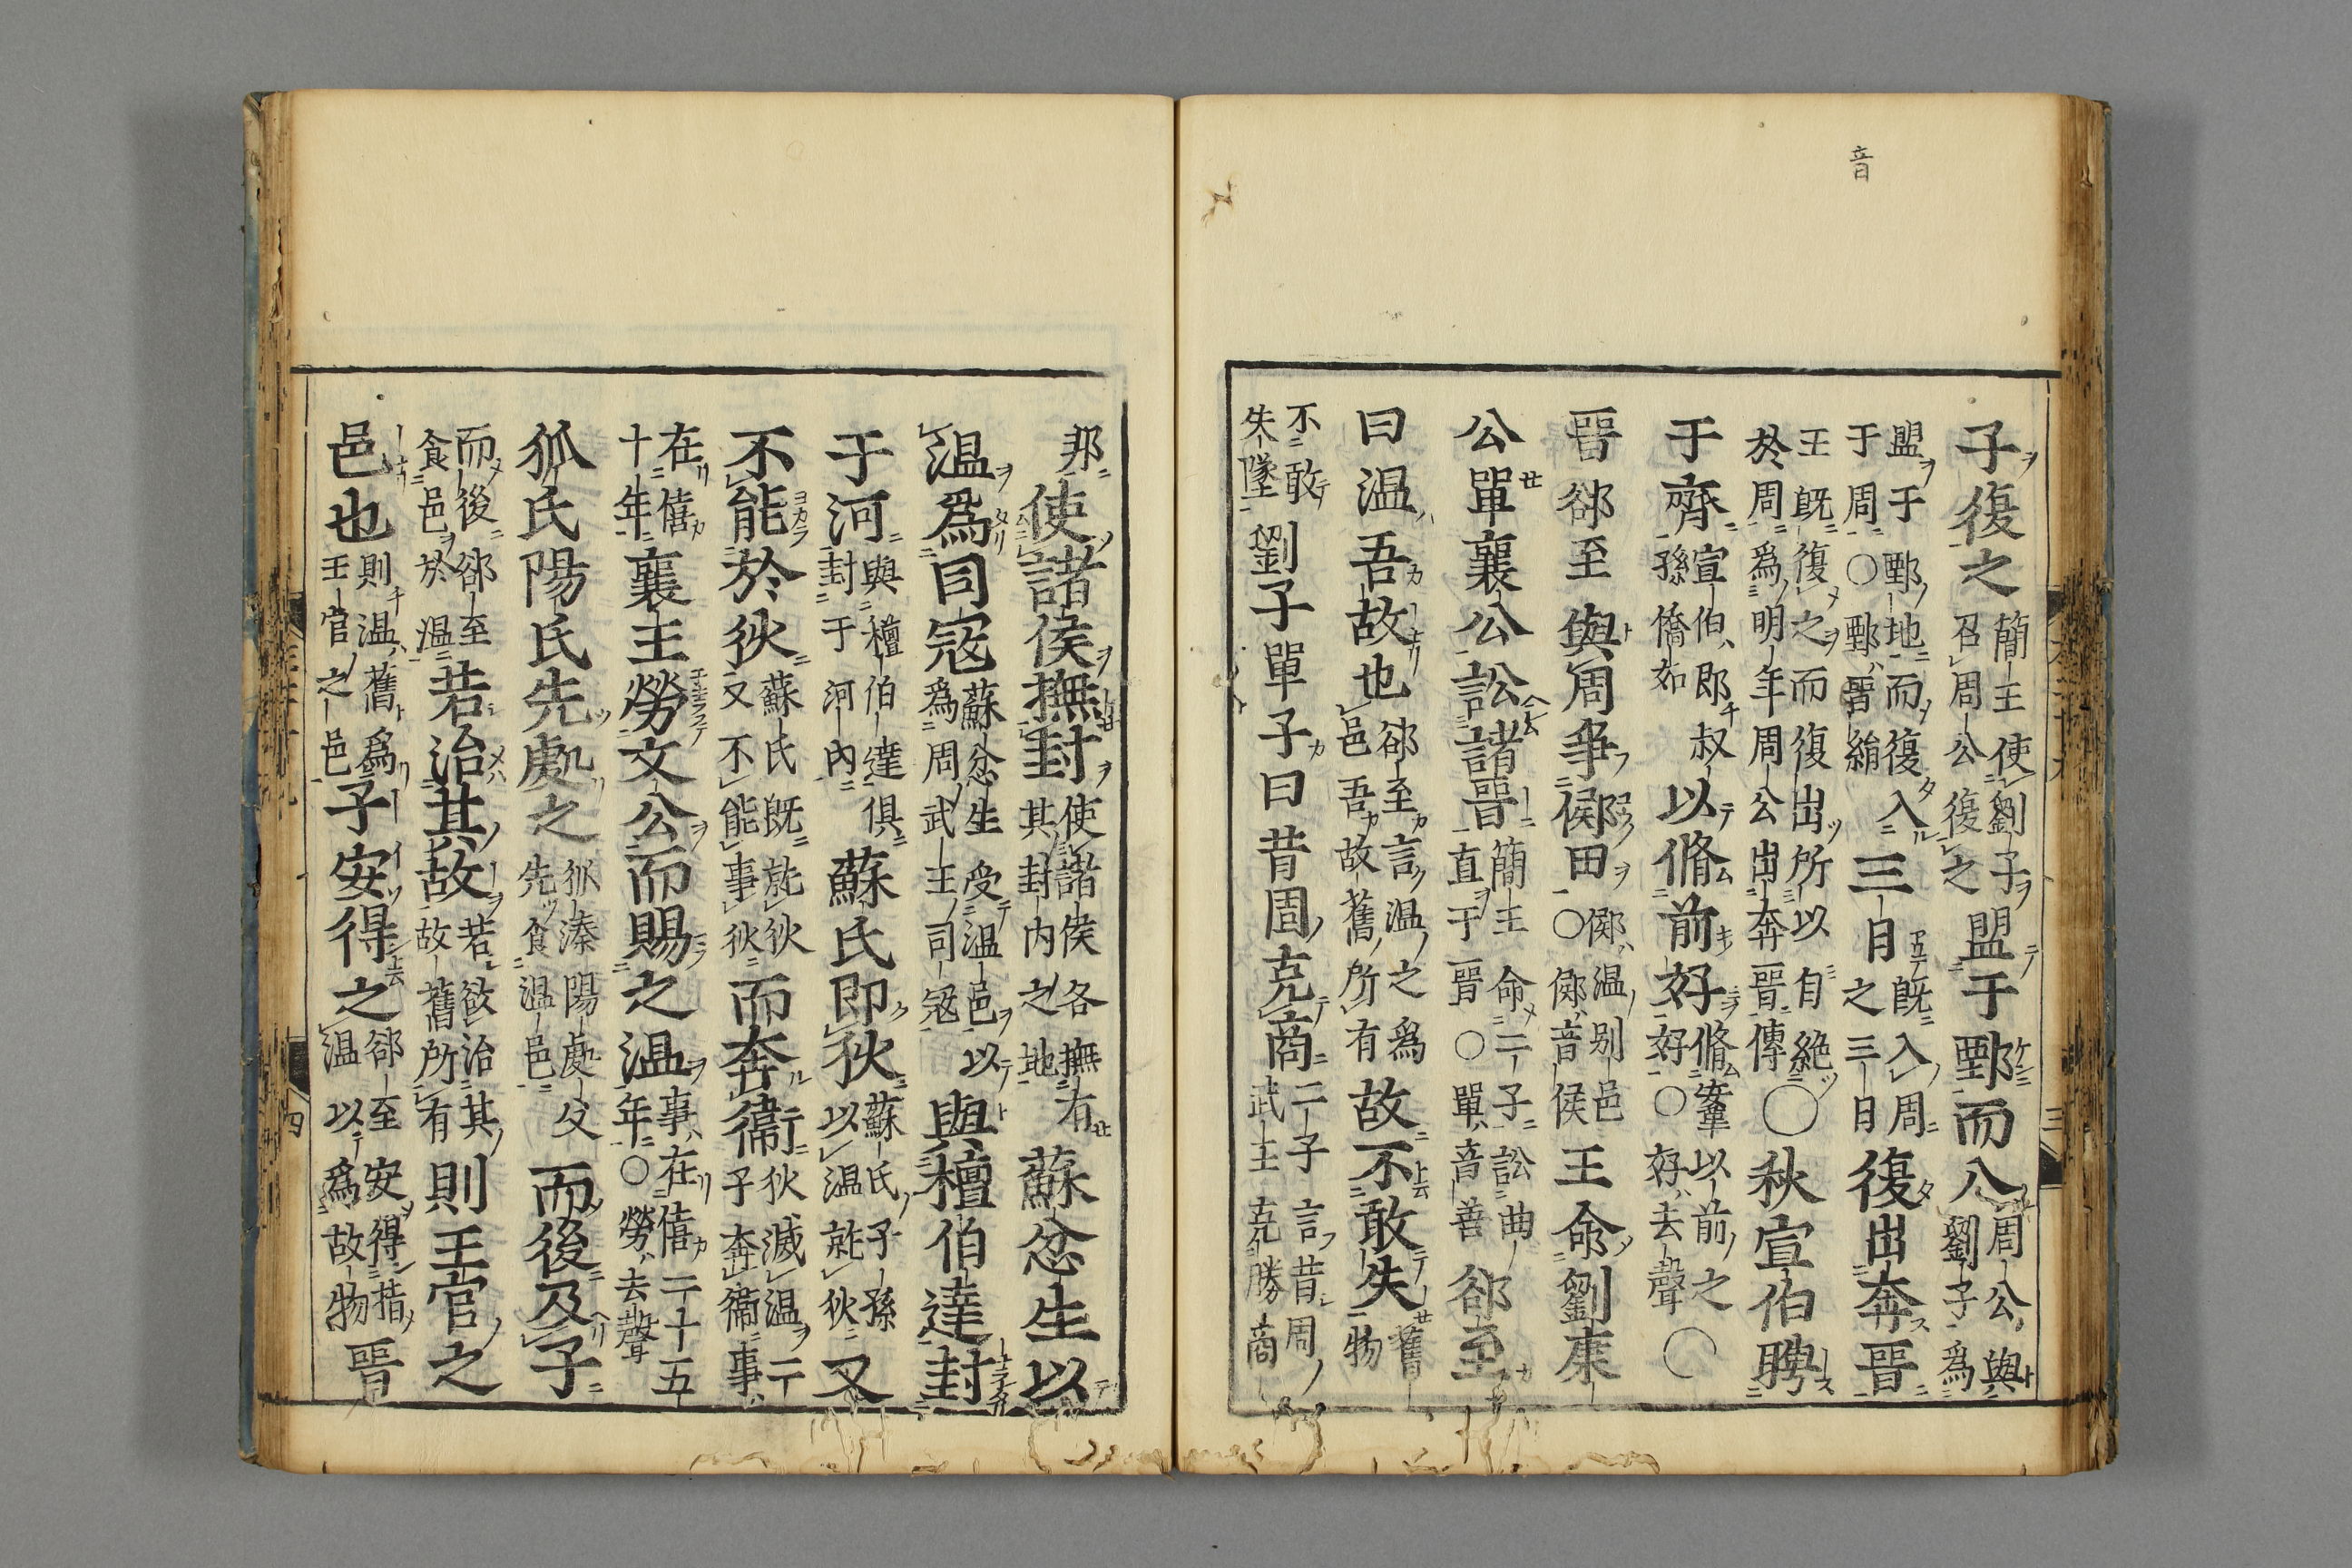 音
子復之簡王使劉子召周公復之盟于鄄而入周公與劉子爲
盟于鄄地而復入于周〇鄄晉絹三日既入周之三日復出奔晉
王既復之而復出所以自絶於周爲明年周公出奔晉傳〇秋宣伯聘
于齊宣伯即叔孫僑如以脩前好脩鞌以前之好〇好去聲〇
晉郤至與周爭鄇田鄇温别邑〇鄇音侯王命劉康
公單襄公訟諸晉簡王命二子訟曲直于晉〇單音善郤至
曰温吾故也郤至言温之爲邑吾故舊所有故不敢失舊物
不敢失墜劉子單子曰昔周克商二子言昔周武王克勝商
三
邦使諸侯撫封使諸侯各撫有其封内之地蘇忿生以
温爲司寇蘇忿生受温邑以爲周武王司寇與檀伯達封
于河與檀伯達俱封于河内蘇氏即狄蘇氏子孫以温就狄又
不能於狄蘇氏既就狄又不能事狄而奔衞狄滅温子奔衞事
在僖十年襄王勞文公而賜之温事在僖二十五年〇勞去聲
狐氏陽氏先處之狐溱陽處父先食温邑而後及子
而後郤至食邑於温若治其故若欲治其故舊所有則王官之
邑也則温舊爲王官之邑子安得之郤至安得措温以爲故物晉
四